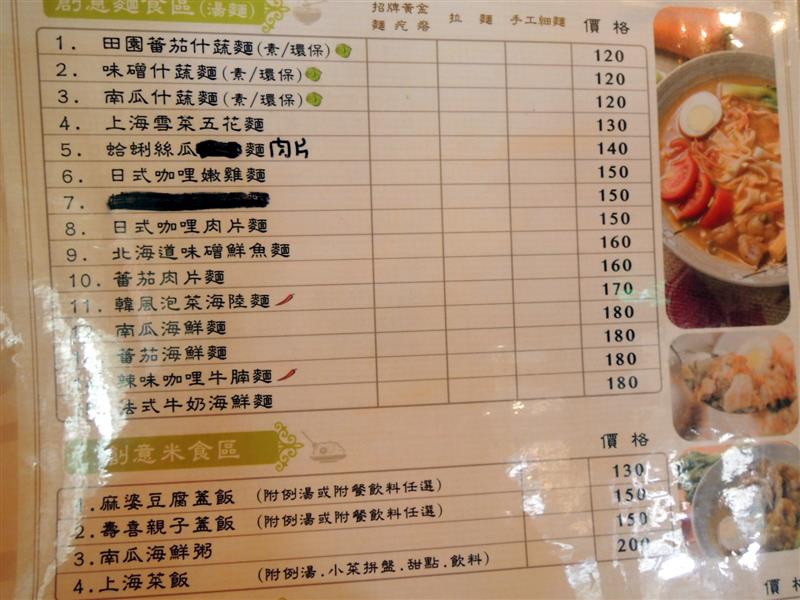 創意麵食區(湯麵) 招牌黃金麵疙瘩 拉麵 手工細麵 價格
1. 田園蕃茄什蔬麵(素/環保) 120
2. 味噌什蔬麵(素/環保) 120
3. 南瓜什蔬麵(素/環保) 120
4. 上海雪菜五花麵 130
5. 蛤蜊絲瓜麵肉片 140
6. 日式咖哩嫩雞麵 150
7. 150
8. 日式咖哩肉片麵 150
9. 北海道味噌鮮魚麵 160
10. 蕃茄肉片麵 160
11. 韓風泡菜海陸麵 170
南瓜海鮮麵 180
蕃茄海鮮麵 180
辣味咖哩牛腩麵 180
法式牛奶海鮮麵 180
創意米食區 價格
1.麻婆豆腐蓋飯 (附例湯或附餐飲料任選) 130
2.壽喜親子蓋飯 (附例湯或附餐飲料任選) 150
3.南瓜海鮮粥 150
4.上海菜飯 (附例湯.小菜拼盤.甜點.飲料) 200
價格